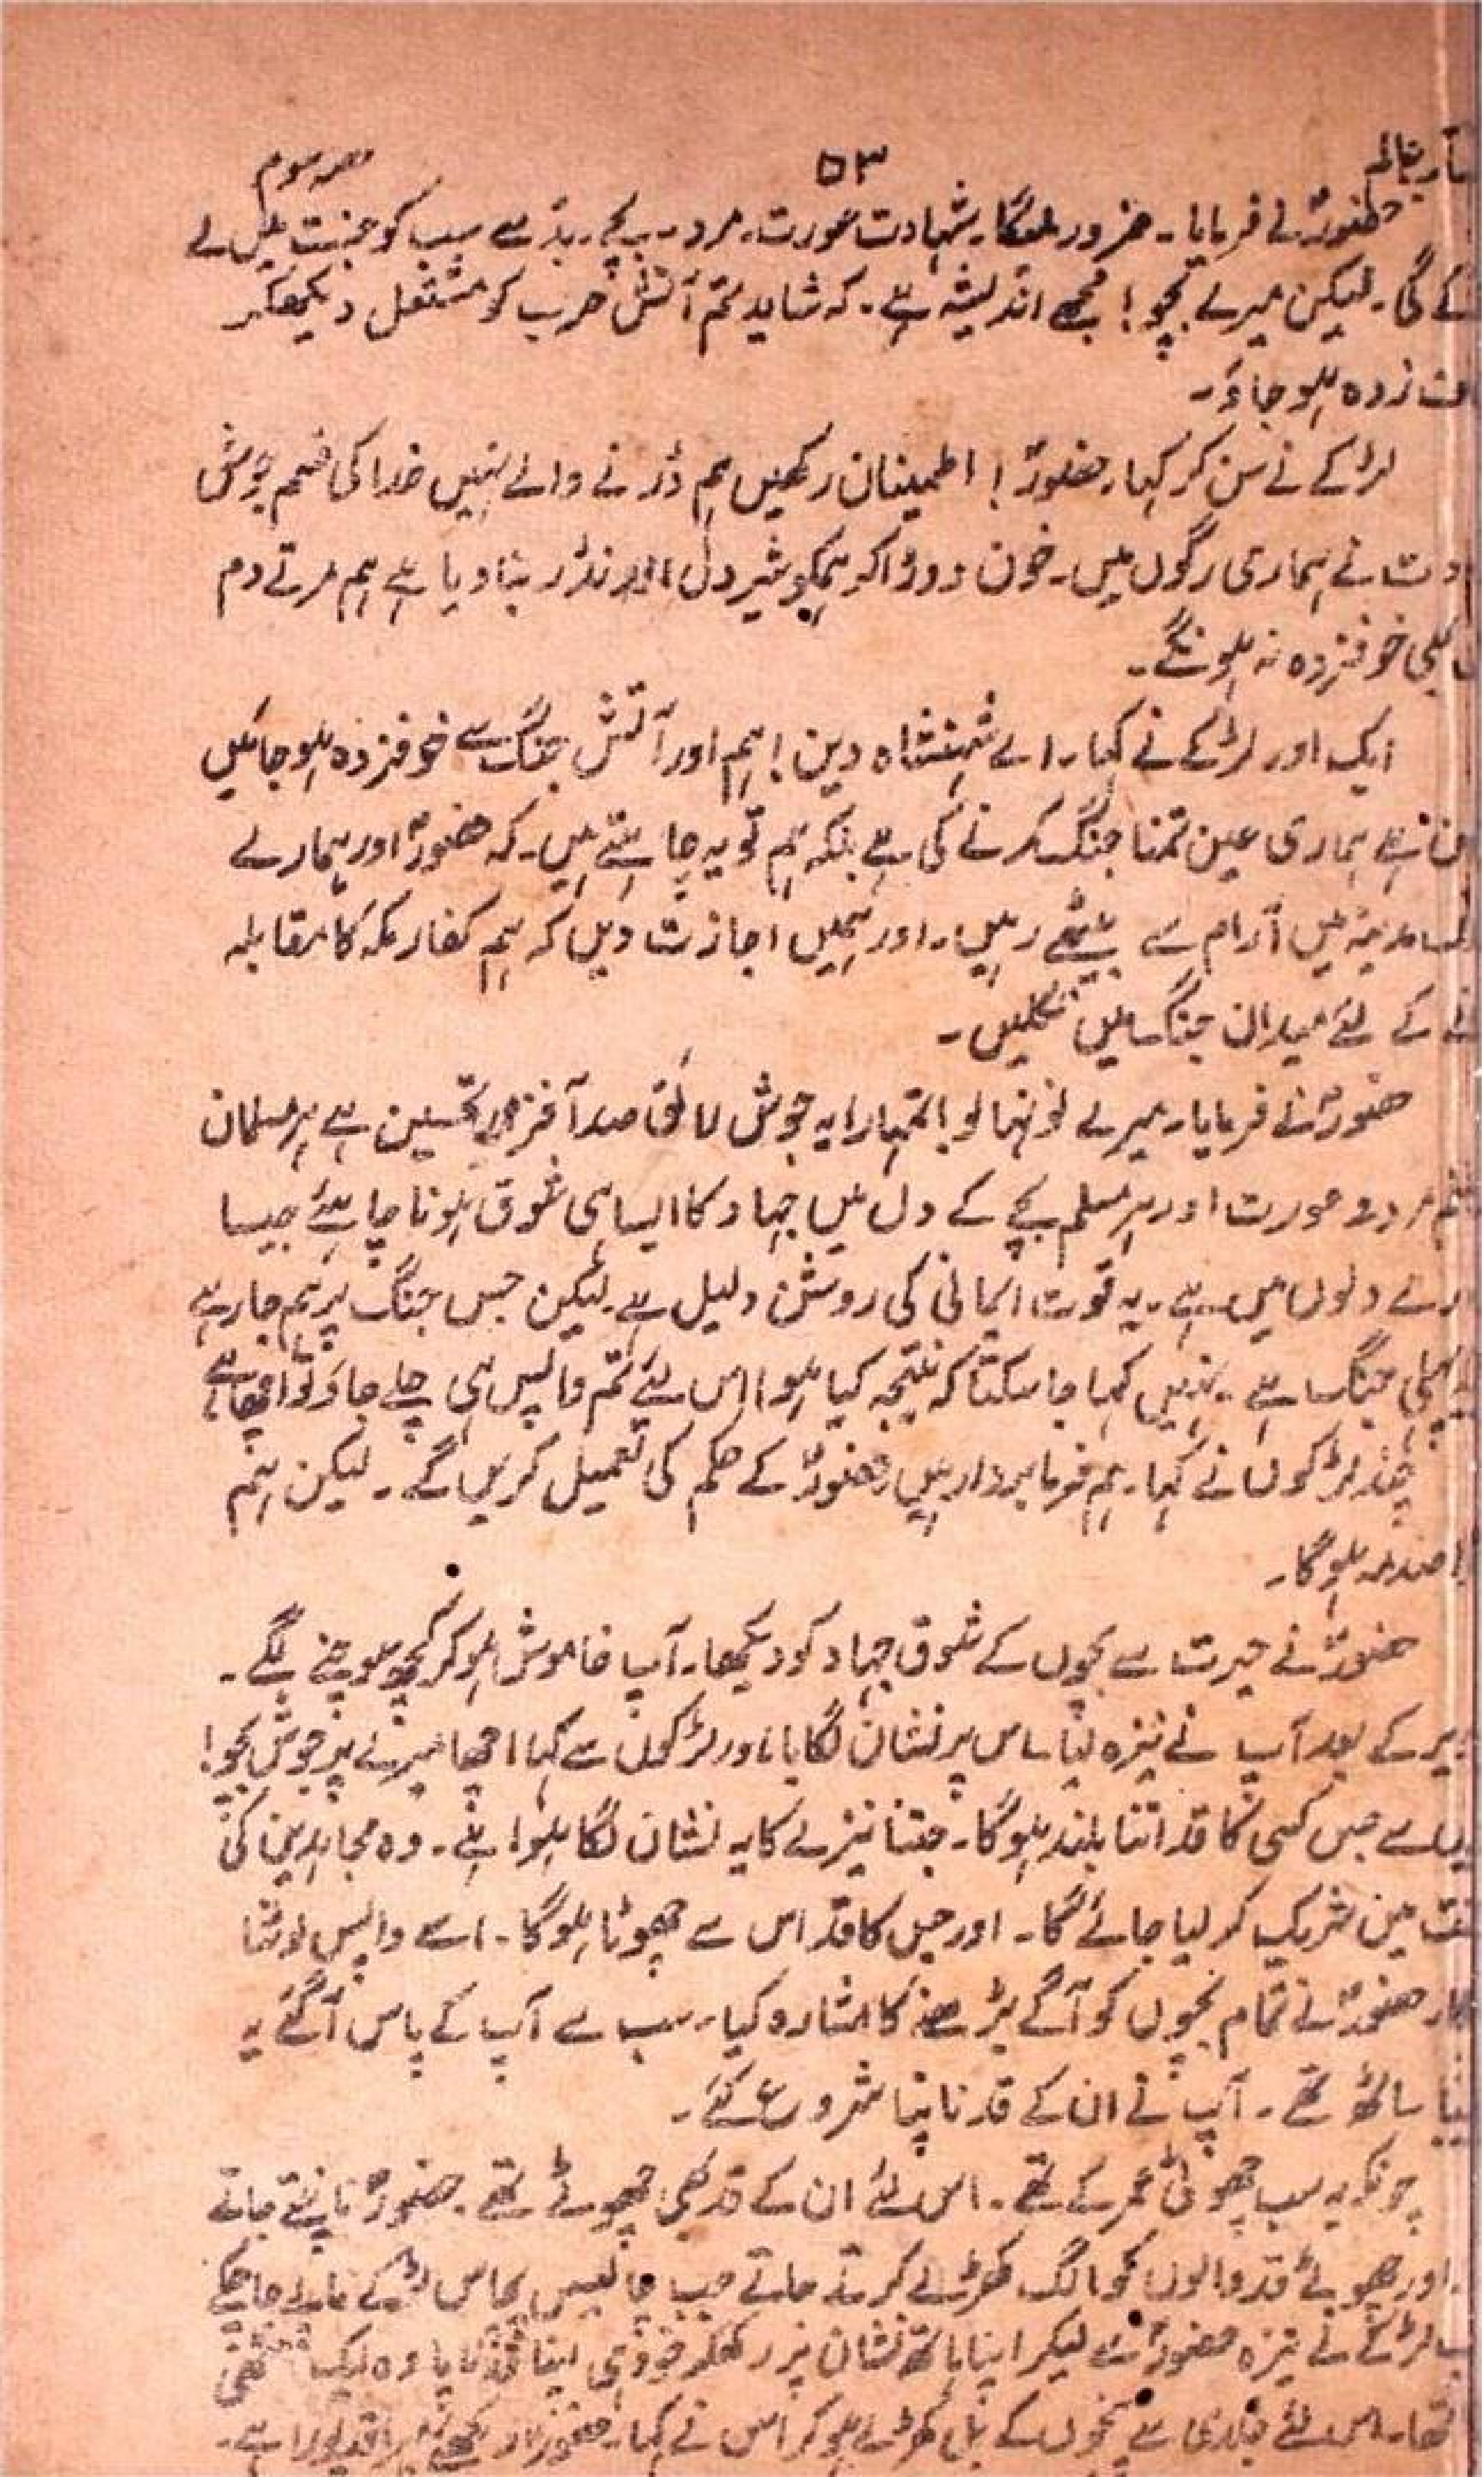 ۵۳ حصہ سوم
حضورؐ نے فرمایا۔ ضرور ملیگا۔ شہادت عورت، مرد۔ بچے۔ بڈھے سب کو جنت میں لے
گی۔ لیکن میرے بچو! مجھے اندیشہ ہے۔ کہ شاید تم آتش حرب کو مشتعل دیکھکر
زدہ ہو جاؤ۔
لڑکے نے سن کر کہا۔ حضورؐ! اطمینان رکھیں ہم ڈرنے والے نہیں خدا کی قسم جوش
نے ہماری رگوں میں۔ خون دوڑا کر ہمکو شیر دل اور نڈر بنا دیا ہے ہم مرتے دم
بھی خوفزدہ نہ ہونگے۔
ایک اور لڑکے نے کہا۔ اے شہنشاہ دین! ہم اور آتش جنگ سے خوفزدہ ہو جائیں
ہماری عین تمنا جنگ کرنے کی ہے بلکہ ہم تو یہ چاہتے ہیں۔ کہ حضورؐ اور ہمارے
مدینہ میں آرام سے بیٹھے رہیں۔ اور ہمیں اجازت دیں کہ ہم کفار مکہ کا مقابلہ
کے لئے میدان جنگ میں نکلیں۔
حضورؐ نے فرمایا۔ میرے نونہالو! تمہارا یہ جوش لائق صد آفرین و تحسین ہے ہر مسلمان
مرد و عورت اور ہر مسلم بچے کے دل میں جہاد کا ایسا ہی شوق ہونا چاہئے جیسا
دلوں میں ہے۔ یہ قوت ایمانی کی روشن دلیل ہے۔ لیکن جس جنگ پر ہم جا رہے
پہلی جنگ ہے۔ نہیں کہا جا سکتا کہ نتیجہ کیا ہو! اس لئے تم واپس ہی چلے جاؤ تو اچھا ہے
چند لڑکوں نے کہا۔ ہم فرمابردار ہیں۔ حضورؐ کے حکم کی تعمیل کریں گے۔ لیکن ہم
صدمہ ہوگا۔
حضورؐ نے حیرت سے بچوں کے شوق جہاد کو دیکھا۔ آپ خاموش ہو کر کچھ سوچنے لگے۔
کے بعد آپ نے نیزہ لیا۔ اس پر نشان لگایا۔ اور لڑکوں سے کہا اچھا میرے پر جوش بچو!
سے جس کسی کا قد اتنا بلند ہوگا۔ جتنا نیزے کا یہ نشان لگا ہوا ہے۔ وہ مجاہدین کی
میں شریک کر لیا جائے گا۔ اور جس کا قد اس سے چھوٹا ہوگا۔ اسے واپس لوٹنا
حضورؐ نے تمام بچوں کو آگے بڑھنے کا اشارہ کیا۔ سب سے آپ کے پاس آگئے یہ
ساٹھ تھے۔ آپ نے ان کے قد ناپنا شروع کئے۔
چونکہ یہ سب چھوٹی عمر کے تھے۔ اس لئے ان کے قد بھی چھوٹے تھے۔ حضورؐ ناپتے جاتے
اور چھوٹے قد والوں کو الگ کھڑے کرتے جاتے جب چالیس پچاس لڑکے ناپے جا چکے
لڑکے نے نیزہ حضورؐ سے لیکر اپنا ہاتھ نشان پر رکھکر خود ہی اپنا قد ناپا۔ وہ ایک
تھا۔ اس لئے جلدی سے پنجوں کے بل کھڑے ہو کر اس نے کہا۔ حضورؐ قد پورا ہے۔